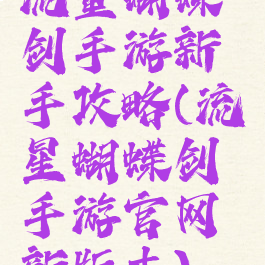 流星蝴蝶
剑手游新
手攻略(流
星蝴蝶剑
手游官网
新版本)